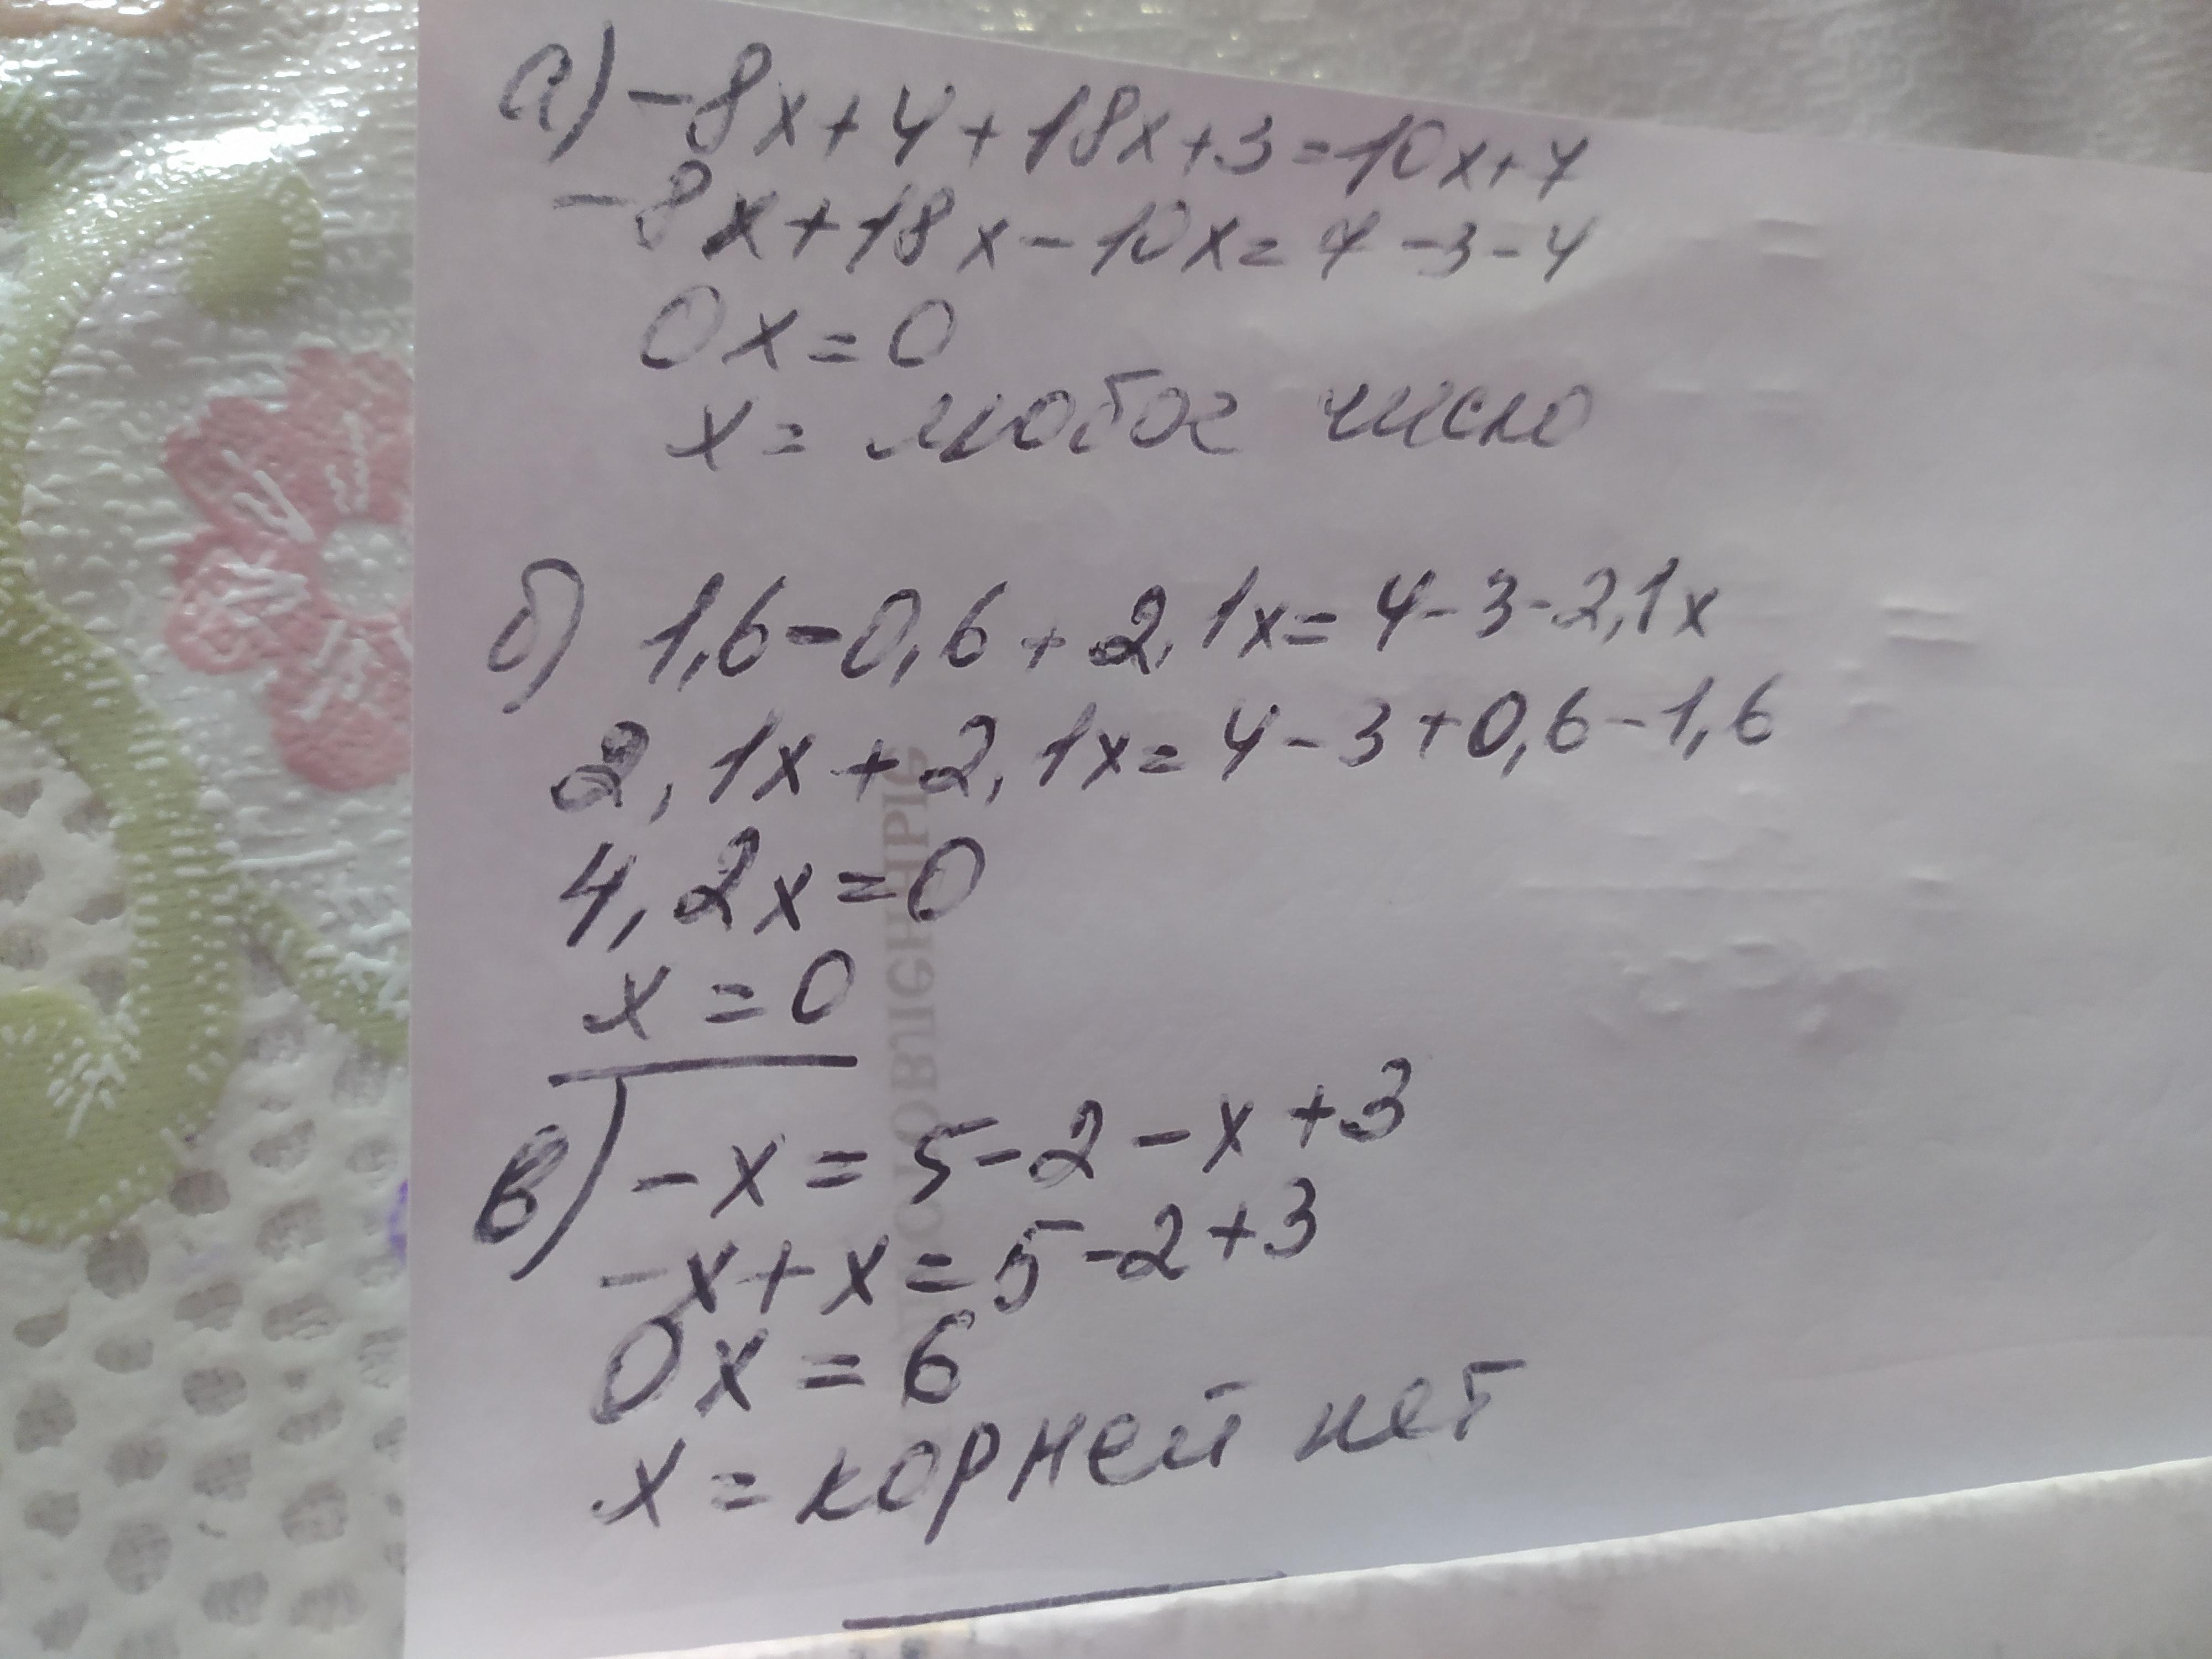 а) -8x+4+18x+3=10x+7
-8x+18x-10x=7-3-4
0x=0
x= любое число
б) 1,6-0,6+2,1x=4-3-2,1x
2,1x+2,1x=4-3+0,6-1,6
4,2x=0
x=0
в) -x=5-2-x+3
-x+x=5-2+3
0x=6
x=корней нет